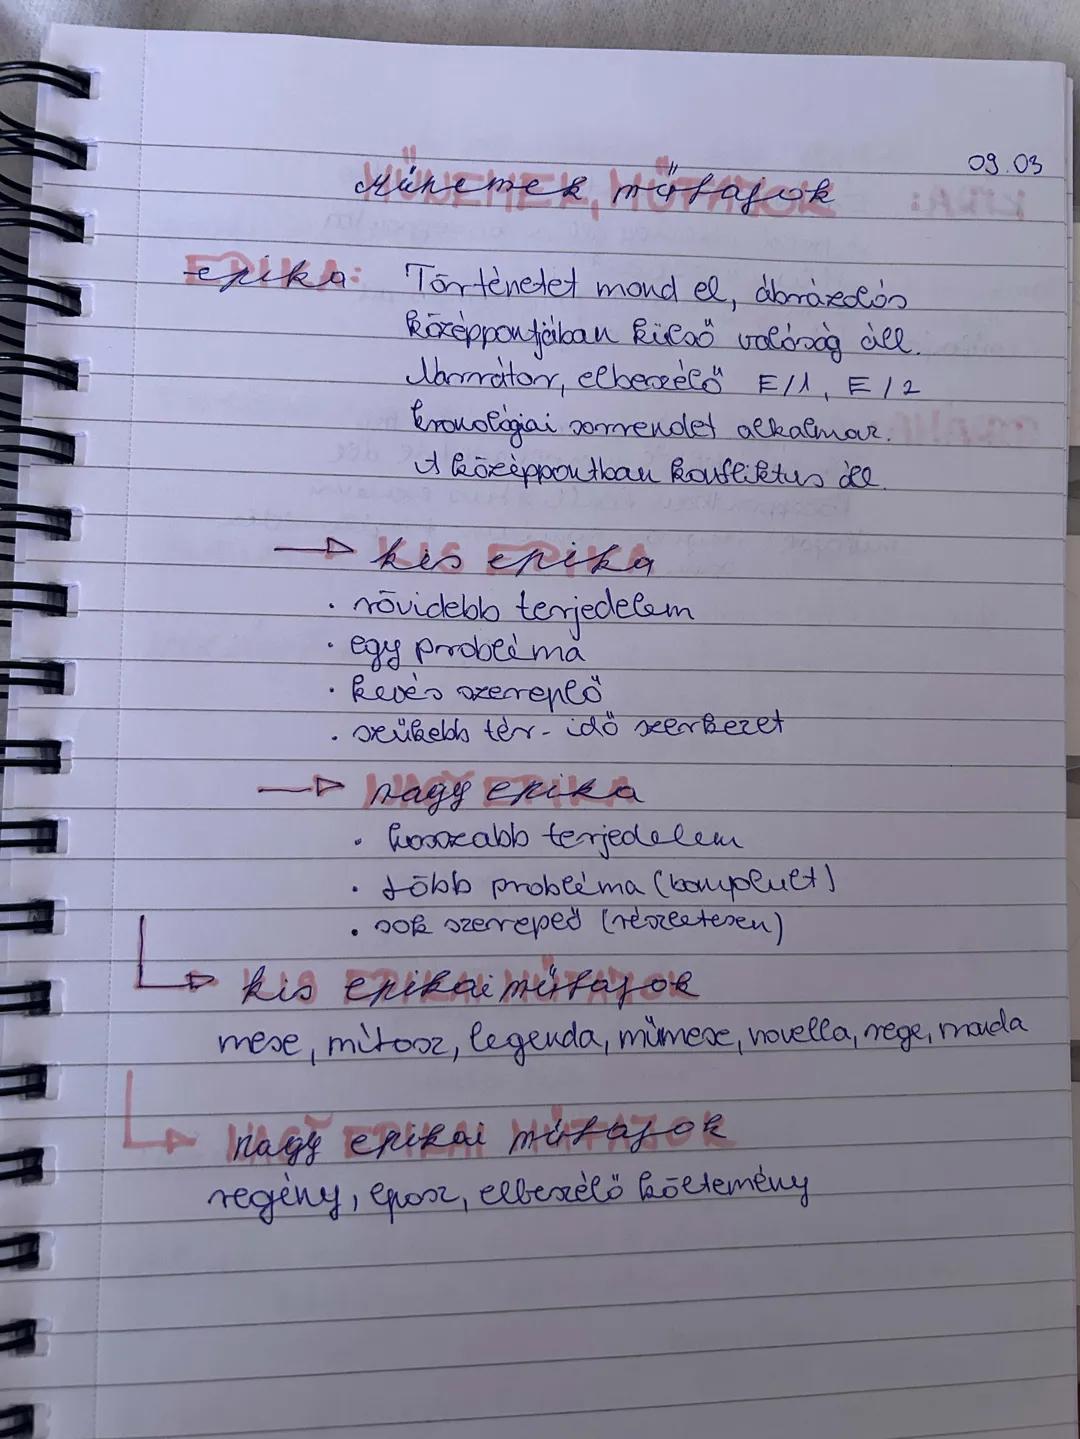 09.03
Műnemek, műfajok
epika: Történetet mond el, ábrázolás
középpontjában külső valóság áll.
Narrátor, elbeszélő E/1, E/2
kronológiai sorrendet alkalmaz.
A középpontban konfliktus áll.
→ kis epika
· rövidebb terjedelem
· egy probléma
· kevés szereplő
· szűkebb tér-idő szerkezet
→ nagy epika
· hosszabb terjedelem
· több probléma (komplult)
· sok szerepeő (részletesen)
↳ kis epikai műfajok
mese, mítosz, legenda, műmese, novella, rege, monda
↳ nagy epikai műfajok
regény, eposz, elbeszélő költemény